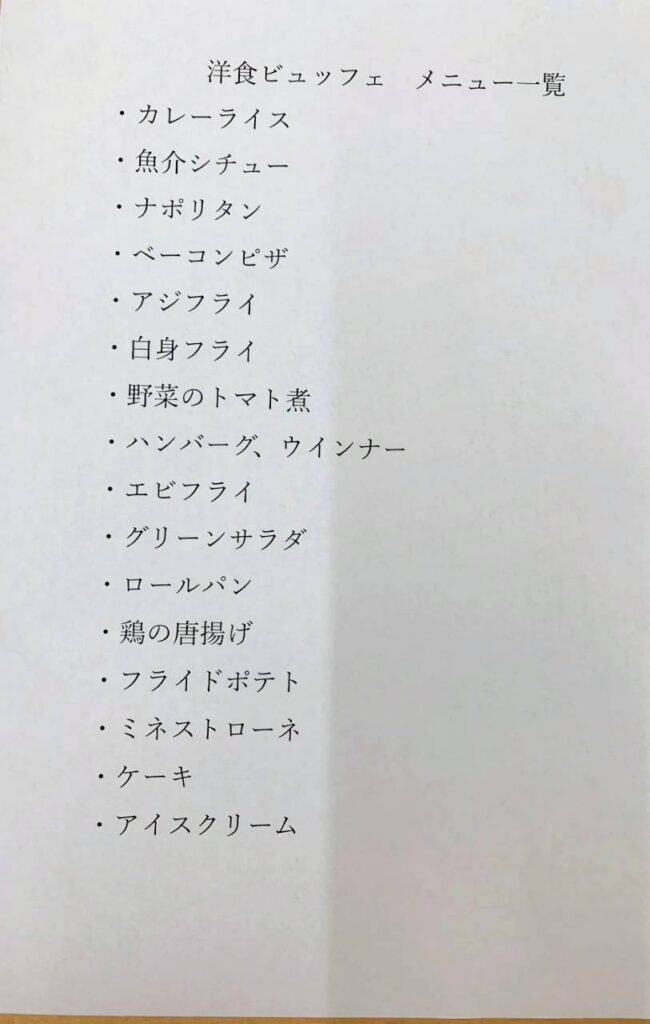 洋食ビュッフェ　メニュー一覧
・カレーライス
・魚介シチュー
・ナポリタン
・ベーコンピザ
・アジフライ
・白身フライ
・野菜のトマト煮
・ハンバーグ、ウインナー
・エビフライ
・グリーンサラダ
・ロールパン
・鶏の唐揚げ
・フライドポテト
・ミネストローネ
・ケーキ
・アイスクリーム